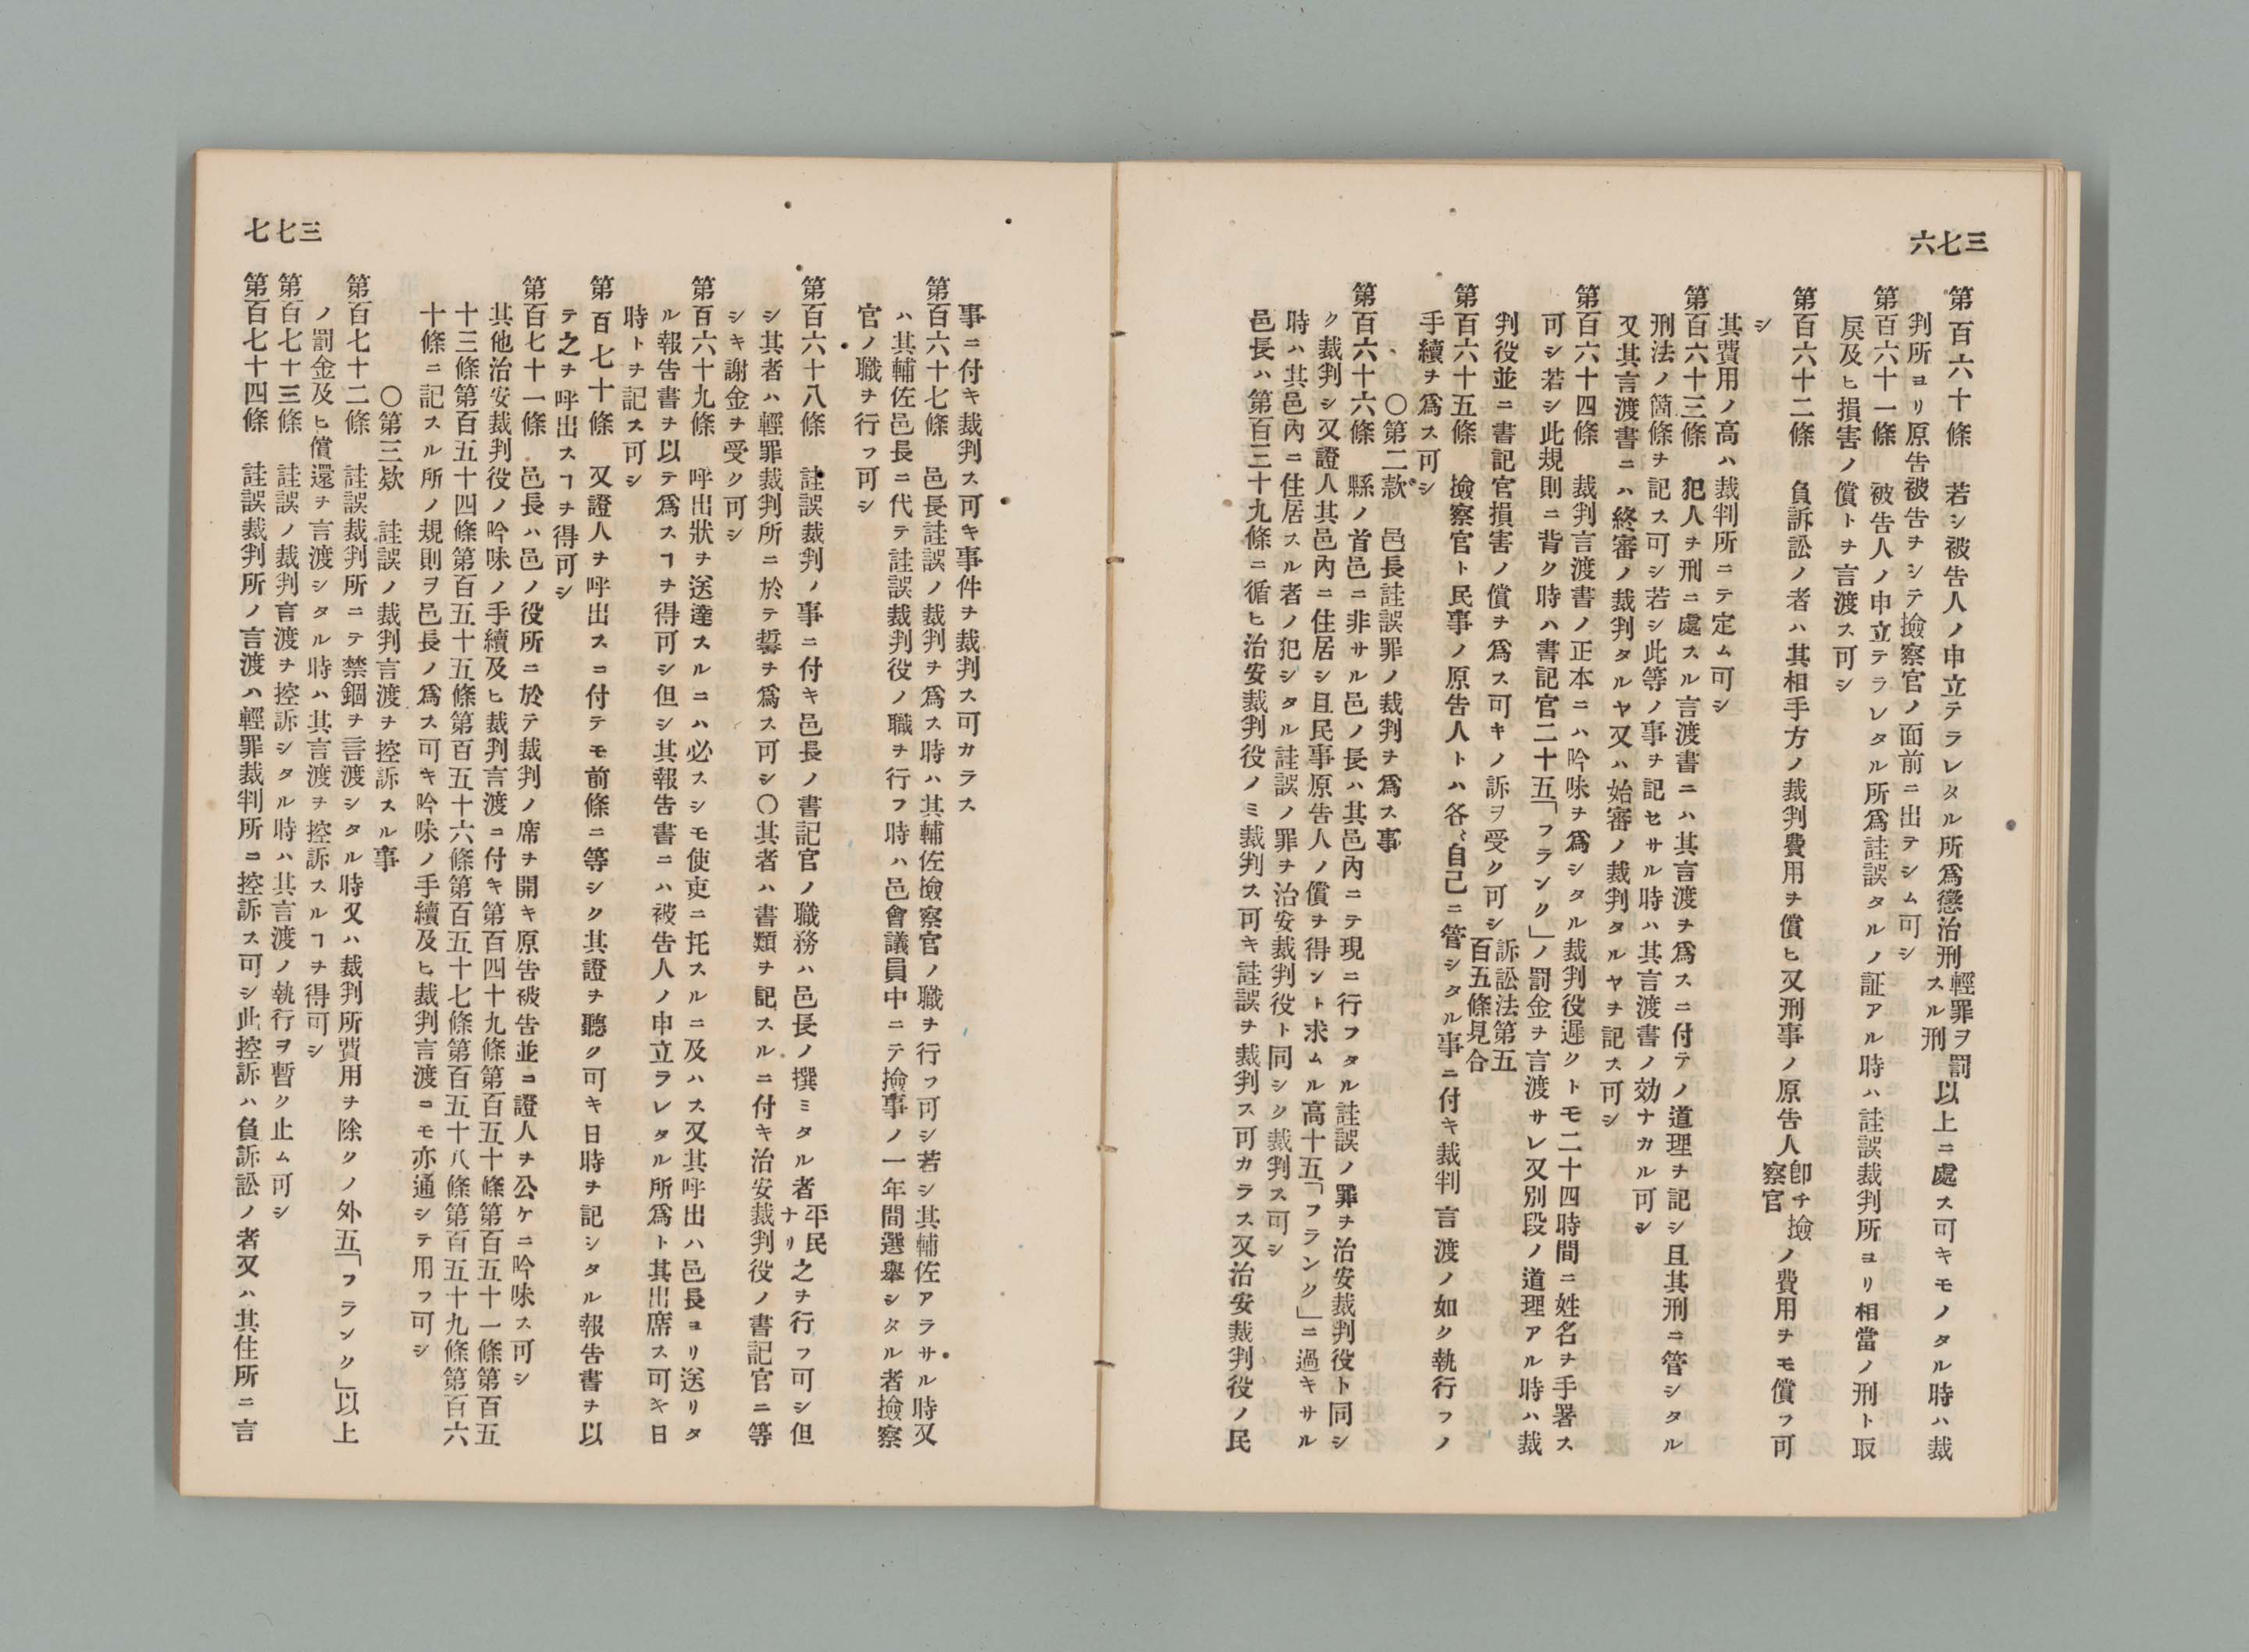 三七六
第百六十條　若シ被告人ノ申立テラレタル所爲懲治刑輕罪ヲ罰スル刑以上ニ處ス可キモノタル時ハ裁
判所ヨリ原告被告ヲシテ撿察官ノ面前ニ出テシム可シ
第百六十一條　被告人ノ申立テラレタル所爲註誤タルノ証アル時ハ註誤裁判所ヨリ相當ノ刑ト取
戾及ヒ損害ノ償トヲ言渡ス可シ
第百六十二條　負訴訟ノ者ハ其相手方ノ裁判費用ヲ償ヒ又刑事ノ原告人卽チ撿察官ノ費用ヲモ償フ可
シ
其費用ノ高ハ裁判所ニテ定ム可シ
第百六十三條　犯人ヲ刑ニ處スル言渡書ニハ其言渡ヲ爲スニ付テノ道理ヲ記シ且其刑ニ管シタル
刑法ノ箇條ヲ記ス可シ若シ此等ノ事ヲ記セサル時ハ其言渡書ノ効ナカル可シ
又其言渡書ニハ終審ノ裁判タルヤ又ハ始審ノ裁判タルヤヲ記ス可シ
第百六十四條　裁判言渡書ノ正本ニハ吟味ヲ爲シタル裁判役遲クトモ二十四時間ニ姓名ヲ手署ス
可シ若シ此規則ニ背ク時ハ書記官二十五「フランク」ノ罰金ヲ言渡サレ又別段ノ道理アル時ハ裁
判役並ニ書記官損害ノ償ヲ爲ス可キノ訴ヲ受ク可シ訴訟法第五百五條見合
第百六十五條　撿察官ト民事ノ原告人トハ各〻自己ニ管シタル事ニ付キ裁判言渡ノ如ク執行フノ
手續ヲ爲ス可シ
〇第二款　邑長註誤罪ノ裁判ヲ爲ス事
第百六十六條　縣ノ首邑ニ非サル邑ノ長ハ其邑內ニテ現ニ行フタル註誤ノ罪ヲ治安裁判役ト同シ
ク裁判シ又證人其邑內ニ住居シ且民事原告人ノ償ヲ得ント求ムル高十五「フランク」ニ過キサル
時ハ其邑內ニ住居スル者ノ犯シタル註誤ノ罪ヲ治安裁判役ト同シク裁判ス可シ
邑長ハ第百三十九條ニ循ヒ治安裁判役ノミ裁判ス可キ註誤ヲ裁判ス可カラス又治安裁判役ノ民
三七七
事ニ付キ裁判ス可キ事件ヲ裁判ス可カラス
第百六十七條　邑長註誤ノ裁判ヲ爲ス時ハ其輔佐撿察官ノ職ヲ行フ可シ若シ其輔佐アラサル時又
ハ其輔佐邑長ニ代テ註誤裁判役ノ職ヲ行フ時ハ邑會議員中ニテ撿事ノ一年間選擧シタル者撿察
官ノ職ヲ行フ可シ
第百六十八條　註誤裁判ノ事ニ付キ邑長ノ書記官ノ職務ハ邑長ノ撰ミタル者平民ナリ之ヲ行フ可シ但
シ其者ハ輕罪裁判所ニ於テ誓ヲ爲ス可シ〇其者ハ書類ヲ記スルニ付キ治安裁判役ノ書記官ニ等
シキ謝金ヲ受ク可シ
第百六十九條　呼出狀ヲ送達スルニハ必スシモ使吏ニ托スルニ及ハス又其呼出ハ邑長ヨリ送リタ
ル報告書ヲ以テ爲スヿヲ得可シ但シ其報告書ニハ被告人ノ申立ラレタル所爲ト其出席ス可キ日
時トヲ記ス可シ
第百七十條　又證人ヲ呼出スコ付テモ前條ニ等シク其證ヲ聽ク可キ日時ヲ記シタル報告書ヲ以
テ之ヲ呼出スヿヲ得可シ
第百七十一條　邑長ハ邑ノ役所ニ於テ裁判ノ席ヲ開キ原告被告並コ證人ヲ公ケニ吟味ス可シ
其他治安裁判役ノ吟味ノ手續及ヒ裁判言渡コ付キ第百四十九條第百五十條第百五十一條第百五
十三條第百五十四條第百五十五條第百五十六條第百五十七條第百五十八條第百五十九條第百六
十條ニ記スル所ノ規則ヲ邑長ノ爲ス可キ吟味ノ手續及ヒ裁判言渡コモ亦通シテ用フ可シ
〇第三欵　註誤ノ裁判言渡ヲ控訴スル事
第百七十二條　註誤裁判所ニテ禁錮ヲ言渡シタル時又ハ裁判所費用ヲ除クノ外五「フランク」以上
ノ罰金及ヒ償還ヲ言渡シタル時ハ其言渡ヲ控訴スルヿヲ得可シ
第百七十三條　註誤ノ裁判言渡ヲ控訴シタル時ハ其言渡ノ執行ヲ暫ク止ム可シ
第百七十四條　註誤裁判所ノ言渡ハ輕罪裁判所コ控訴ス可シ此控訴ハ負訴訟ノ者又ハ其住所ニ言